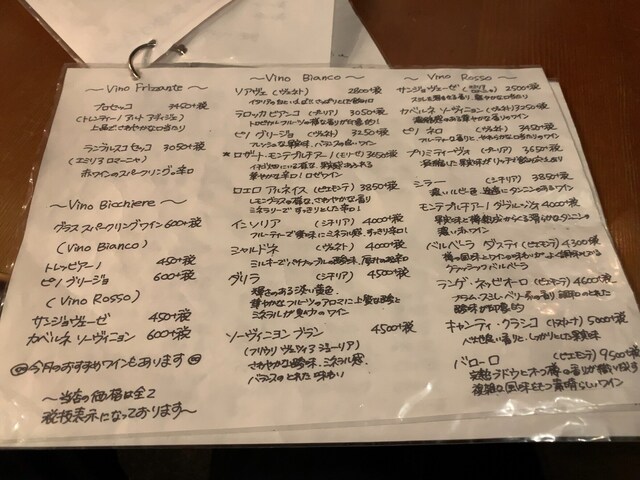 〜Vino Frizzante〜
プロセッコ 3450+税
(トレンティーノ アルト アディジェ)
上品でさわやかな口あたり
ランブルスコ セッコ 3050+税
(エミリア ロマーニャ)
赤ワインのスパークリング 辛口
〜Vino Biochiere〜
グラス スパークリングワイン 600+税
(Vino Bianco)
トレッビアーノ 450+税
ピノ グリージョ 600+税
(Vino Rosso)
サンジョヴェーゼ 450+税
カベルネ ソーヴィニョン 600+税
今月のおすすめワインもあります
〜当店の価格は全て
税抜表示になっております〜
〜Vino Bianco〜
ソアヴェ (ヴェネト) 2800+税
テロッカ ビアンコ (プーリア) 3050+税
ピノ グリージョ (ヴェネト) 3250+税
フレッシュな果実味、バランスの良いワイン
ロザート・モンテプルチアーノ (モリーゼ) 3650+税
華やかな辛口ロゼワイン
ロエロ アルネイス (ピエモンテ) 3850+税
ミネラリーですっきりとした辛口
インソリア (シチリア) 4000+税
フルーティーで酸味にミネラル感、すっきり辛口
シャルドネ (ヴェネト) 4000+税
グリラ (シチリア) 4500+税
輝きのある淡い黄色
華やかなフルーツのアロマに上質な酸と
ミネラルが魅力のワイン
ソーヴィニヨン ブラン 4500+税
(フリウリ ヴェネツィア ジューリア)
さわやかな酸味、ミネラル感、
バランスのとれた味わい
〜Vino Rosso〜
サンジョヴェーゼ 2500+税
カベルネ ソーヴィニョン (ヴェネト) 3250+税
ピノ ネロ (シチリア) 3650+税
フルーティーな香りとやわらかな口あたりのワイン
プリミティーヴォ (プーリア) 3650+税
シラー (シチリア) 3850+税
濃いルビー色、適度にタンニンのあるワイン
モンテプルチアーノ ダブルッツォ 4000+税
濃い赤ワイン
バルベーラ ダスティ (ピエモンテ) 4300+税
クラッシックバルベーラ
ランゲ・ネッビオーロ (ピエモンテ) 4600+税
酸味が印象的
キャンティ・クラシコ (トスカーナ) 5000+税
バローロ (ピエモンテ) 9500+税
複雑な風味をもつ素晴らしいワイン